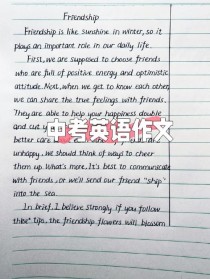 Friendship
Friendship is like sunshine in winter, so it
plays an important role in our daily life.
First, we are supposed to choose friends
who are full of positive energy and optimistic
attitude. Next, when we get to know each other,
we can share the true feelings with friends.
They are able to help your happiness double
and cut
中考英语作文
better care
unhappy, we should think of ways to cheer
them up. What's more, It's best to communicate
with friends, or we'll send our friend "ship"
into the sea.
In brief, I believe strongly if you follow
these tips, the friendship flowers will blossom